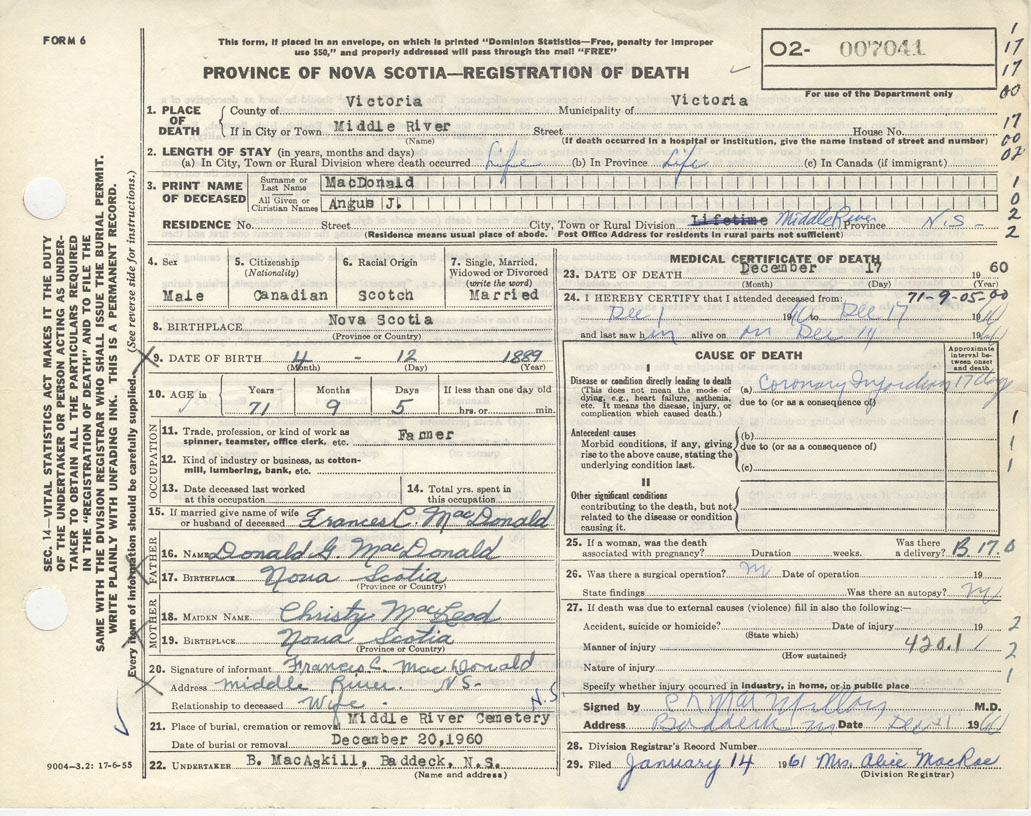 FORM 6
This form, if placed in an envelope, on which is printed "Dominion Statistics—Free, penalty for improper
use $50," and properly addressed will pass through the mail "FREE"
O2- 007041
For use of the Department only
PROVINCE OF NOVA SCOTIA—REGISTRATION OF DEATH
1. PLACE OF DEATH
County of Victoria Municipality of Victoria
If in City or Town Middle River Street House No.
(Name) (If death occurred in a hospital or Institution, give the name instead of street and number)
2. LENGTH OF STAY (in years, months and days)
(a) In City, Town or Rural Division where death occurred Life (b) In Province Life (c) In Canada (if immigrant)
3. PRINT NAME OF DECEASED
Surname or Last Name MacDonald
All Given or Christian Names Angus J.
RESIDENCE No. Street City, Town or Rural Division Lifetime Middle River Province N.S -
(Residence means usual place of abode. Post Office Address for residents in rural parts not sufficient)
4. Sex
Male
5. Citizenship
(Nationality)
Canadian
6. Racial Origin
Scotch
7. Single, Married, Widowed or Divorced
(write the word)
Married
8. BIRTHPLACE Nova Scotia
(Province or Country)
9. DATE OF BIRTH - 12 1889
(Month) (Day) (Year)
10. AGE in
Years Months Days If less than one day old
71 9 5 hrs. or min.
OCCUPATION
11. Trade, profession, or kind of work as
spinner, teamster, office clerk, etc. Farmer
12. Kind of industry or business, as cotton-
mill, lumbering, bank, etc.
13. Date deceased last worked
at this occupation
14. Total yrs. spent in
this occupation
15. If married give name of wife
or husband of deceased Frances C. MacDonald
FATHER
16. NAME Donald G. MacDonald
17. BIRTHPLACE Nova Scotia
(Province or Country)
MOTHER
18. MAIDEN NAME Christy MacLeod
19. BIRTHPLACE Nova Scotia
(Province or Country)
20. Signature of informant Frances C. MacDonald
Address Middle River. N.S-
Relationship to deceased Wife. N.S
21. Place of burial, cremation or removal Middle River Cemetery
Date of burial or removal December 20,1960
22. UNDERTAKER B. MacAskill, Baddeck, N.S.
(Name and address)
MEDICAL CERTIFICATE OF DEATH
23. DATE OF DEATH December 17 1960
(Month) (Day) (Year)
24. I HEREBY CERTIFY that I attended deceased from: 71-9-05-00
Dec 1 19 to Dec 17 19
and last saw h alive on Dec 19
CAUSE OF DEATH
Approximate interval between onset and death
I
Disease or condition directly leading to death
(This does not mean the mode of
dying, e.g., heart failure, asthenia,
etc. It means the disease, injury, or
complication which caused death.)
(a) Coronary 17 days
due to (or as a consequence of)
Antecedent causes
Morbid conditions, if any, giving
rise to the above cause, stating the
underlying condition last.
(b)
due to (or as a consequence of)
(c)
II
Other significant conditions
contributing to the death, but not
related to the disease or condition
causing it.
25. If a woman, was the death
associated with pregnancy? Duration weeks. Was there
a delivery? B.17.0
26. Was there a surgical operation? Date of operation 19
State findings Was there an autopsy?
27. If death was due to external causes (violence) fill in also the following:—
Accident, suicide or homicide? Date of injury 19
(State which)
Manner of injury 420.1
(How sustained)
Nature of injury
Specify whether injury occurred in industry, in home, or in public place
Signed by M.D.
Address Baddeck Date 19
28. Division Registrar's Record Number
29. Filed January 14 1961 Mrs. Alice MacRae
(Division Registrar)
SEC. 14—VITAL STATISTICS ACT MAKES IT THE DUTY
OF THE UNDERTAKER OR PERSON ACTING AS UNDER-
TAKER TO OBTAIN ALL THE PARTICULARS REQUIRED
IN THE "REGISTRATION OF DEATH" AND TO FILE THE
SAME WITH THE DIVISION REGISTRAR WHO SHALL ISSUE THE BURIAL PERMIT.
WRITE PLAINLY WITH UNFADING INK. THIS IS A PERMANENT RECORD.
Every item of information should be carefully supplied. (See reverse side for instructions.)
9004-3.2: 17-6-55
1
17
17
00
17
00
02
1
0
2
2
1
1
1
2
2
1